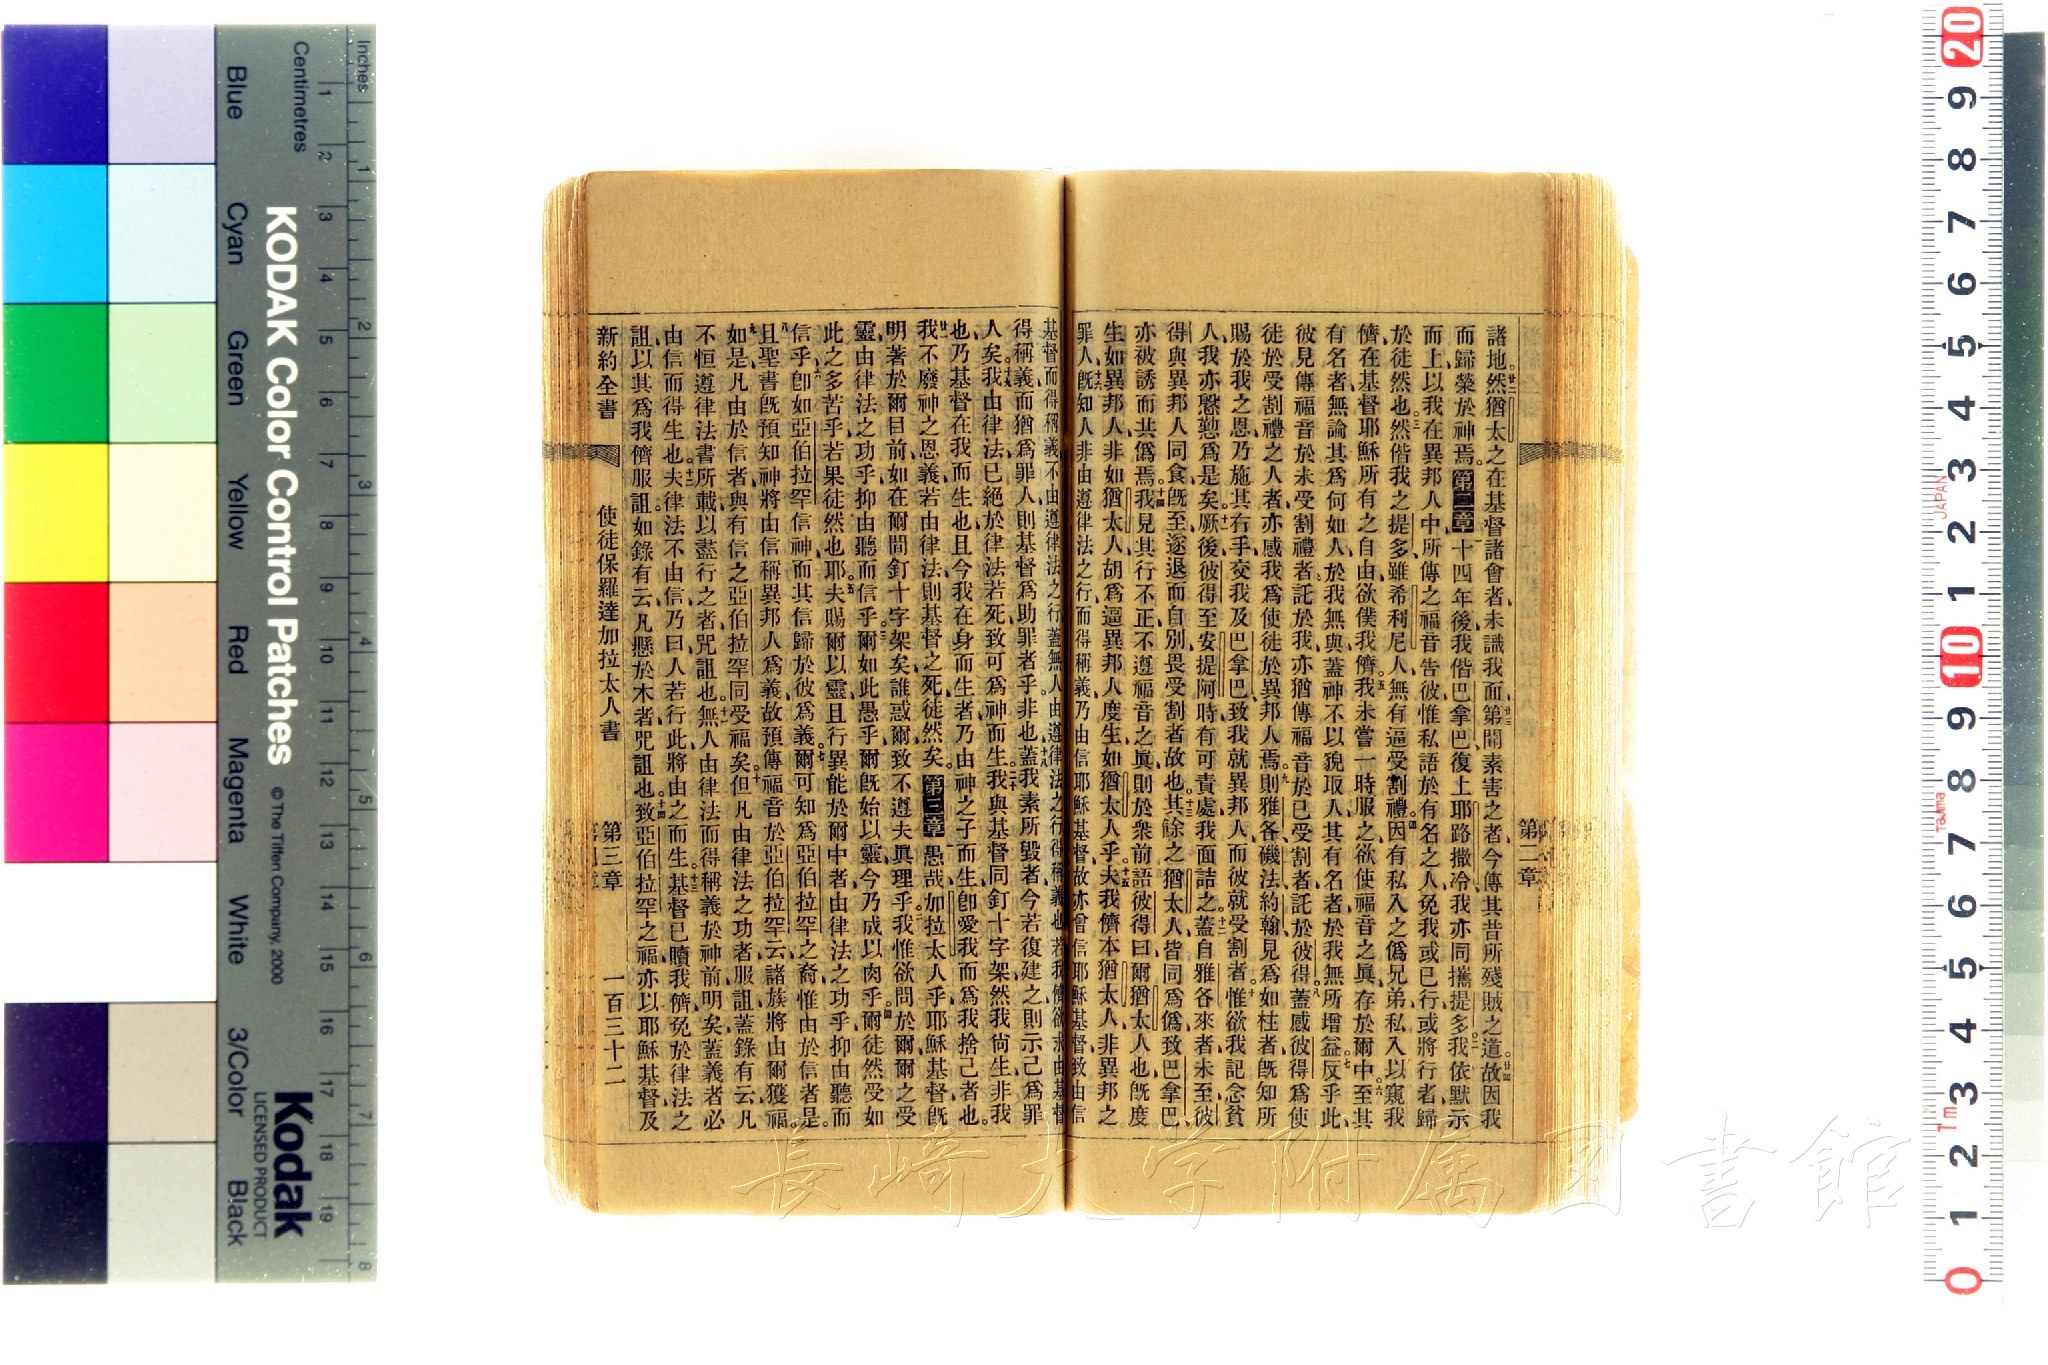 諸地然猶太之在基督諸會者未識我面第聞素害之者今傳其昔所殘賊之道故因我
而歸榮於神焉第二章十四年後我偕巴拿巴復上耶路撒冷我亦同攜提多我依默示
而上以我在異邦人中所傳之福音告彼惟私語於有名之人免我或已行或將行者歸
於徒然也然偕我之提多雖希利尼人無有逼受割禮因有私入之僞兄弟私入以窺我
儕在基督耶穌所有之自由欲僕我儕我未嘗一時服之欲使福音之眞存於爾中至其
有名者無論其爲何如人於我無與蓋神不以貌取人其有名者於我無所增益反乎此
彼見傳福音於未受割禮者託於我亦猶傳福音於已受割者託於彼得蓋感彼得爲使
徒於受割禮之人者亦感我爲使徒於異邦人焉則雅各磯法約翰見爲如柱者旣知所
賜於我之恩乃施其右手交我及巴拿巴致我就異邦人而彼就受割者惟欲我記念貧
人我亦慇懃爲是矣厥後彼得至安提阿時有可責處我面詰之蓋自雅各來者未至彼
得與異邦人同食旣至遂退而自別畏受割者故也其餘之猶太人皆同爲僞致巴拿巴
亦被誘而共僞焉我見其行不正不遵福音之眞則於衆前語彼得曰爾猶太人也旣度
生如異邦人非如猶太人胡爲逼異邦人度生如猶太人乎夫我儕本猶太人非異邦之
罪人旣知人非由遵律法之行而得稱義乃由信耶穌基督故亦曾信耶穌基督致由信
基督而得稱義不由遵律法之行蓋無人由遵律法之行得稱義也若我儕欲求由基督
得稱義而猶爲罪人則基督爲助罪者乎非也蓋我素所毀者今若復建之則示己爲罪
人矣我由律法已絕於律法若死致可爲神而生我與基督同釘十字架然我尙生非我
也乃基督在我而生也且今我在身而生者乃由神之子而生卽愛我而爲我捨己者也
我不廢神之恩義若由律法則基督之死徒然矣第三章愚哉加拉太人乎耶穌基督旣
明著於爾目前如在爾間釘十字架矣誰惑爾致不遵夫眞理乎我惟欲問於爾爾之受
靈由律法之功乎抑由聽而信乎爾如此愚乎爾旣始以靈今乃成以肉乎爾徒然受如
此之多苦乎若果徒然也耶夫賜爾以靈且行異能於爾中者由律法之功乎抑由聽而
信乎卽如亞伯拉罕信神而其信歸於彼爲義爾可知爲亞伯拉罕之裔惟由於信者是
且聖書旣預知神將由信稱異邦人爲義故預傳福音於亞伯拉罕云諸族將由爾獲福
如是凡由於信者與有信之亞伯拉罕同受福矣但凡由律法之功者服詛蓋錄有云凡
不恒遵律法書所載以盡行之者咒詛也無人由律法而得稱義於神前明矣蓋義者必
由信而得生也夫律法不由信乃曰人若行此將由之而生基督已贖我儕免於律法之
詛以其爲我儕服詛如錄有云凡懸於木者咒詛也致亞伯拉罕之福亦以耶穌基督及
新約全書 使徒保羅達加拉太人書 第三章 一百三十二
第二章
長崎大学附属図書館
KODAK Color Control Patches © The Tiffen Company, 2000
Kodak
LICENSED PRODUCT
Inches
Centimetres
Blue
Cyan
Green
Yellow
Red
Magenta
White
3/Color
Black
JAPAN
Tajima